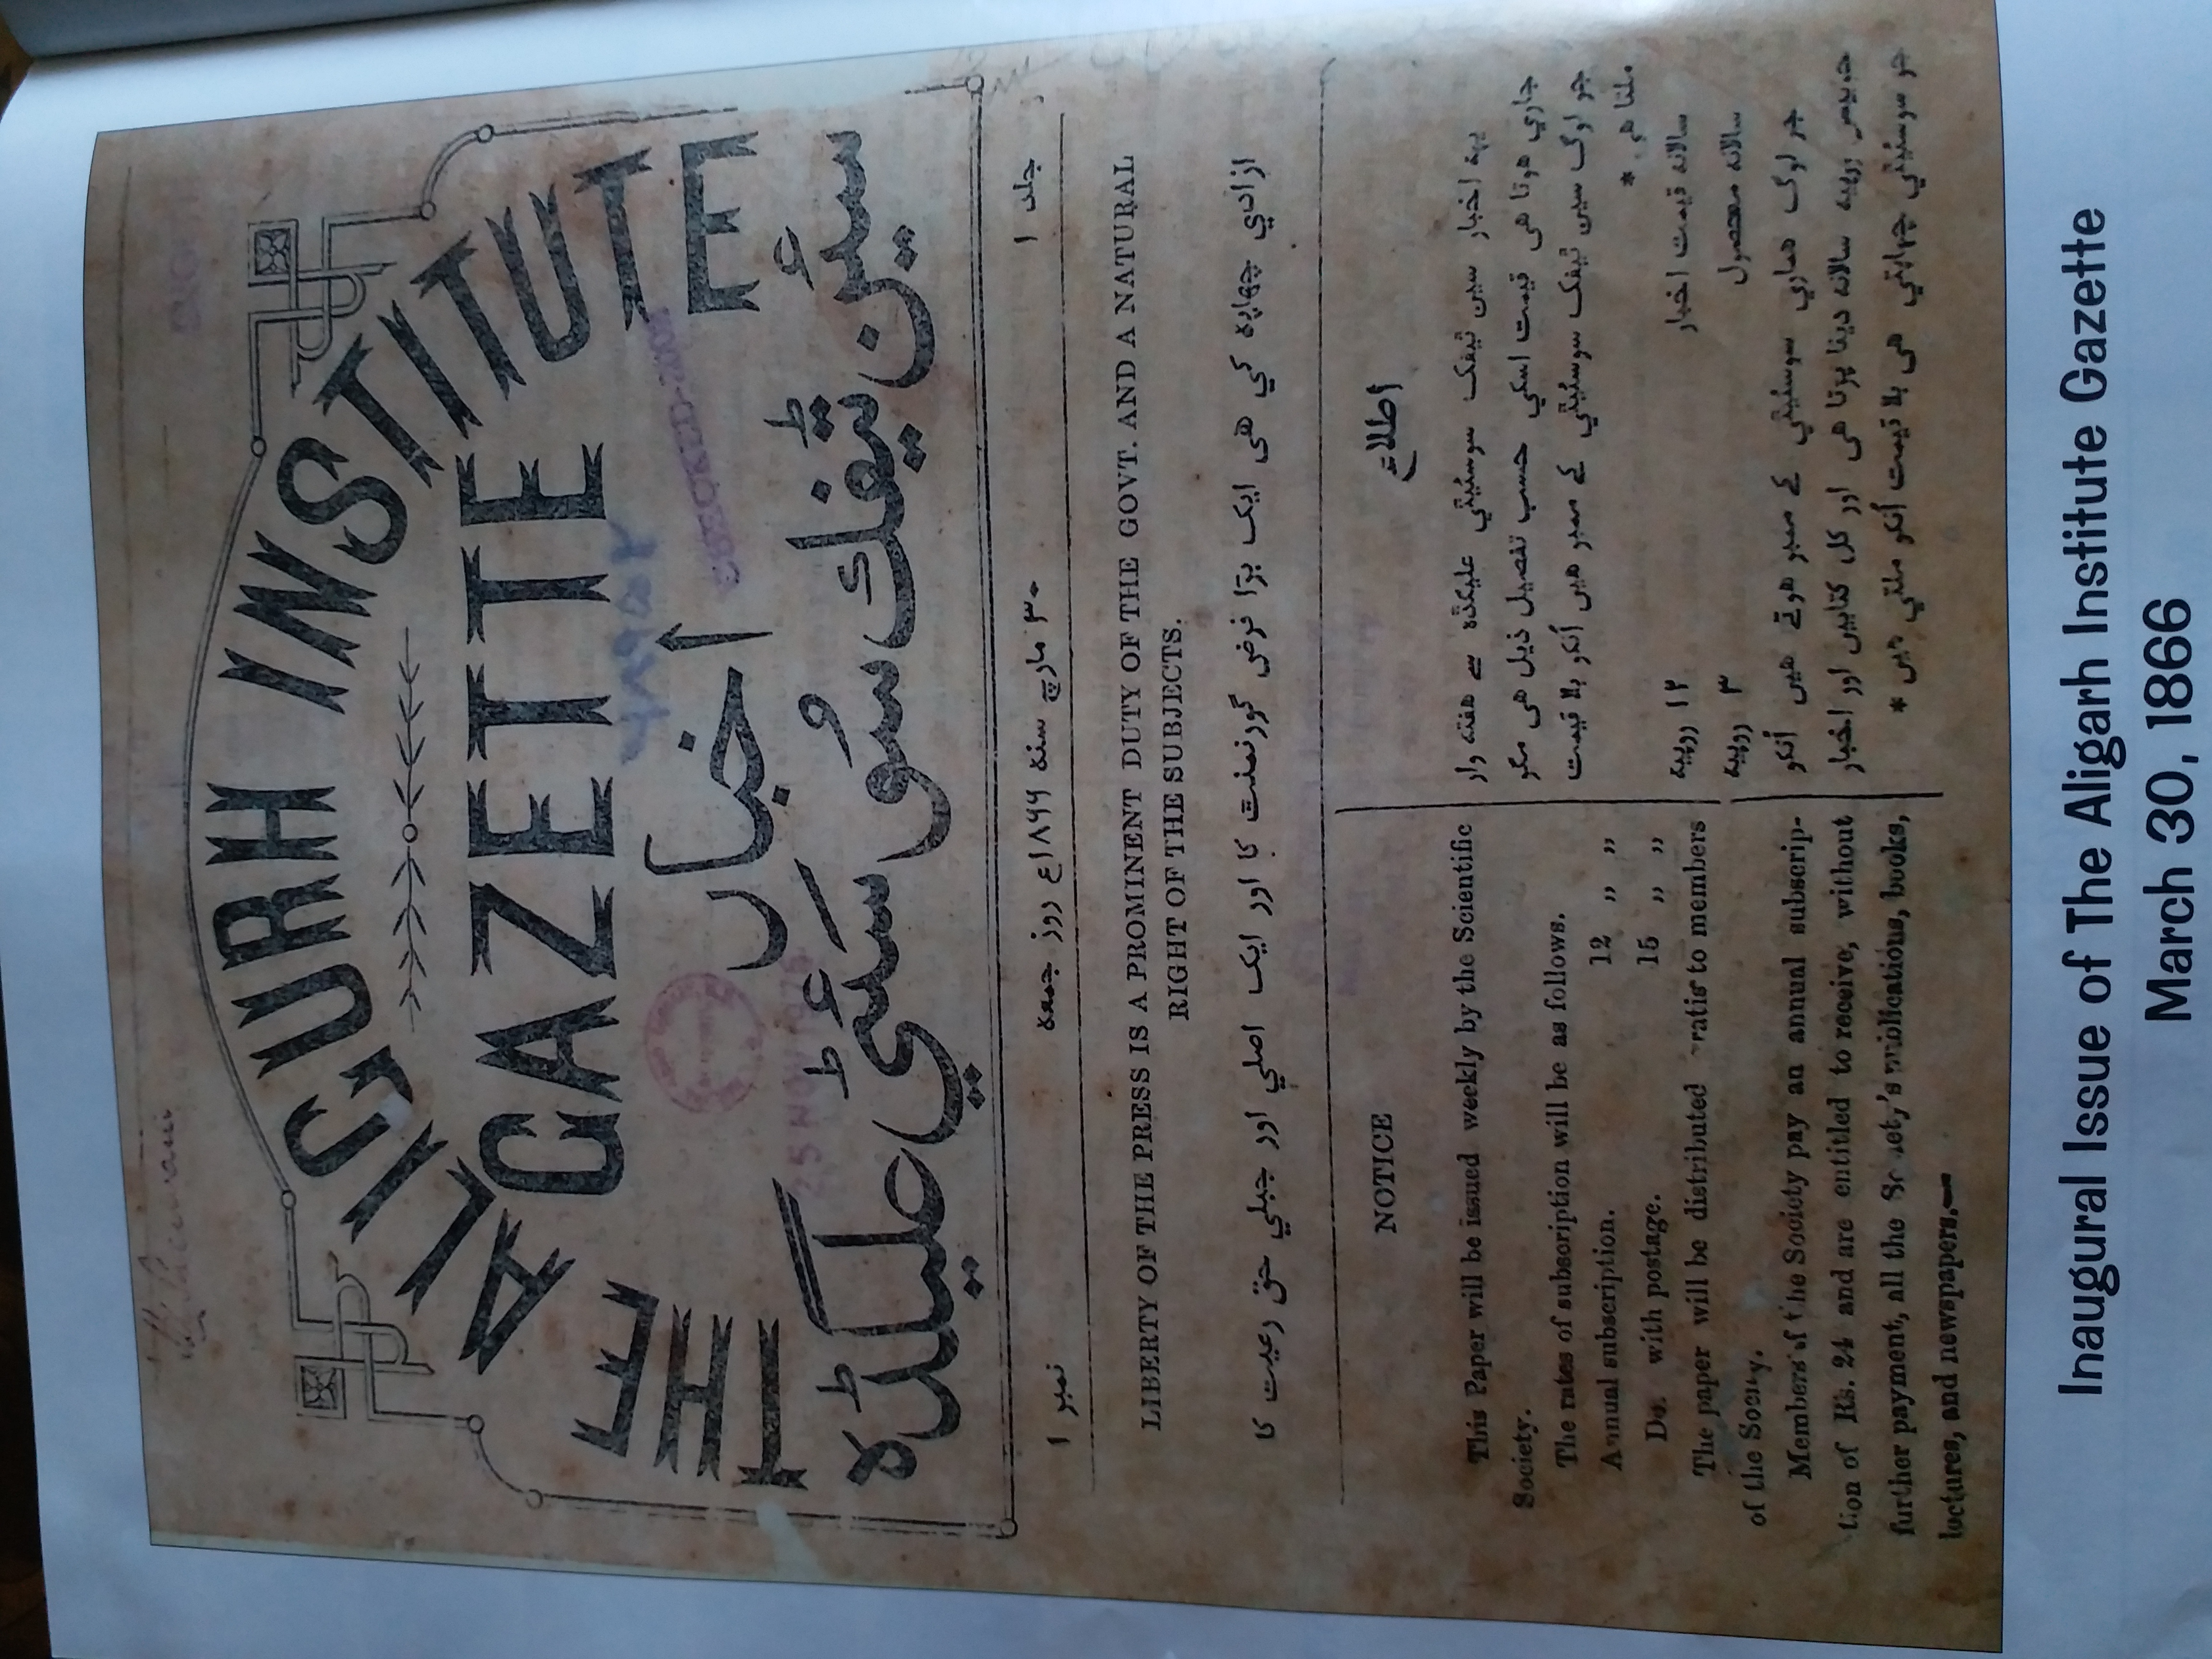 THE ALIGURH INSTITUTE
GAZETTE
اخبار
سئین ٹیفک سُو سَئٹي علیگڈہ
جلد ۱
۳۰ مارچ سنہ ۱۸۶۶ع روز جمعہ
نمبر ۱
LIBERTY OF THE PRESS IS A PROMINENT DUTY OF THE GOVT. AND A NATURAL
RIGHT OF THE SUBJECTS.
ازادي چھاپہ کي ھی ایک بڑا فرض گورنمنٹ کا اور ایک اصلي اور جبلي حق رعیت کا
NOTICE
This Paper will be issued weekly by the Scientific
Society.
The rates of subscription will be as follows.
Annual subscription. 12 ,, ,,
Do. with postage. 15 ,, ,,
The paper will be distributed ratis to members
of the Society.
Members of the Society pay an annual subscrip-
tion of Rs. 24 and are entitled to receive, without
further payment, all the Society's publications, books,
lectures, and newspapers.—
اطلاع
یہہ اخبار سین ٹیفک سوسئیٹي علیگڈہ سے ھفتہ وار
جاري ھوتا ھی قیمت اسکي حسب تفصیل ذیل ھی مگر
جو لوگ سین ٹیفک سوسئیٹي کے ممبر ھیں اُنکو بلا قیمت
ملتا ھی *
سالانہ قیمت اخبار ۱۲ روپیہ
سالانہ محصول ۳ روپیہ
جو لوگ ھماري سوسئیٹي کے ممبر ھوتے ھیں اُنکو
روپیہ سالانہ دینا پڑتا ھی اور کل کتابیں اور اخبار
جو سوسئیٹي چھاپتي ھی بلا قیمت اُنکو ملتي ھیں *
25 NOV 1975
CHECKED-2002
Inaugural Issue of The Aligarh Institute Gazette
March 30, 1866